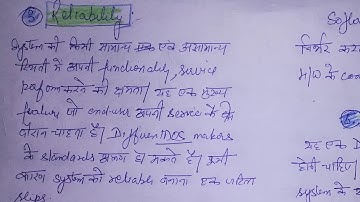 ③ Reliability:-
System की किसी सामान्य एक असामान्य
स्थिती में अपनी functionality, service
perform करने की क्षमता। यह एक मुख्य
feature जो enduser अपनी service के
दौरान चाहता है। Different DOS makers
के standards अलग हो सकते हैं। इसी
कारण system को reliable बनाना एक जटिल
steps.
Softa
निर्भर कर
H/W के con
यह एक D
होनी चाहिए।
system के